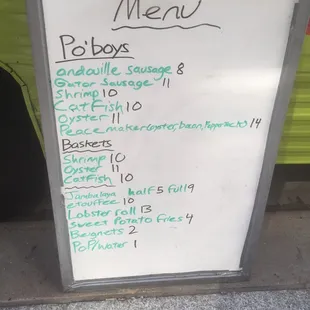 Menu
Po'boys
andouille sausage 8
Gator Sausage 11
Shrimp 10
Catfish 10
Oyster 11
Peacemaker (oyster, bacon, Pepper Jack) 14
Baskets
Shrimp 10
Oyster 11
Catfish 10
Jambalaya half 5 full 9
etouffee 10
Lobster roll 13
Sweet Potato Fries 4
Beignets 2
Pop/Water 1